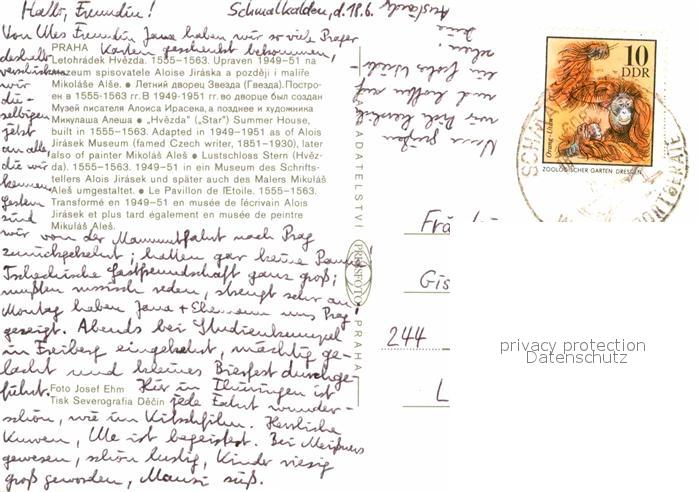 Hallo, Freundin! Schmalkalden, d. 18.6.
Von Utes Freundin Jana haben wir so viele Prager
Karten geschenkt bekommen,
deshalb
verschicken
wir
die-
selbigen
jetzt
an alle,
die wir
kennen.
Gestern
sind
PRAHA
Letohrádek Hvězda. 1555–1563. Upraven 1949–51 na
muzeum spisovatele Aloise Jiráska a později i malíře
Mikoláše Alše. ● Летний дворец Звезда (Гвезда). Постро-
ен в 1555-1563 гг. В 1949-1951 гг. во дворце был создан
Музей писателя Алоиса Ирасека, а позднее и художника
Микулаша Алеша ● „Hvězda" („Star") Summer House,
built in 1555–1563. Adapted in 1949–1951 as of Alois
Jirásek Museum (famed Czech writer, 1851–1930), later
also of painter Mikoláš Aleš ● Lustschloss Stern (Hvěz-
da). 1555–1563. 1949–51 in ein Museum des Schrifts-
tellers Alois Jirásek und später auch des Malers Mikuláš
Aleš umgestaltet. ● Le Pavillon de l'Etoile. 1555–1563.
Transformé en 1949–51 en musée de lécrivain Alois
Jirásek et plus tard également en musée de peintre
Mikuláš Aleš.
wir von der Mammutfahrt nach Prag
zurückgekehrt; hatten gar keine Panne!
Tschechische Gastfreundschaft ganz groß;
mußten russisch reden, strengt sehr an!
Montag haben Jana + Ehemann uns Prag
gezeigt. Abends bei Studienkumpel
in Freiberg eingekehrt, mächtig ge-
lacht und kleines Bierfest durchge-
führt. Hier in Thüringen ist
Foto Josef Ehm
Tisk Severografia Děčín
jede Fahrt wunder-
schön, wie im Kitschfilm. Herrliche
Kurven, Ute ist begeistert. Bei Meißners
gewesen, schön lustig, Kinder riesig
groß geworden, Mausi süß.
wir Dich herzlich
und hoffen auf
ein frohes Wieder-
sehen!
VYDAVATELSTVÍ
PRESSFOTO
PRAHA
10
DDR
Orang-Utan
ZOOLOGISCHER GARTEN DRESDEN
Frä
Gis
244
L
privacy protection
Datenschutz